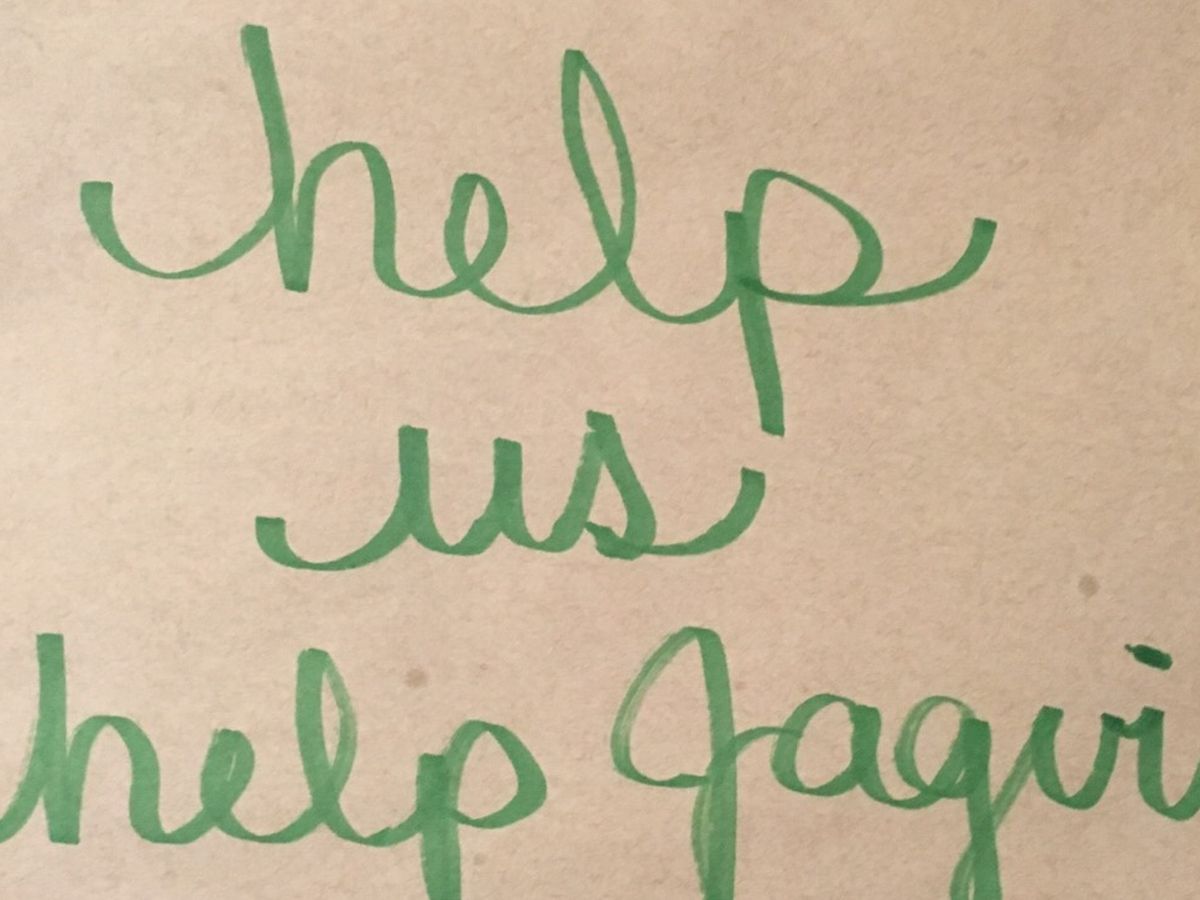 help
us
help Jaqui